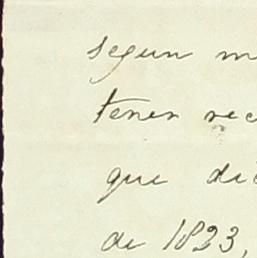 segun m
tener rec
que di
de 1823,